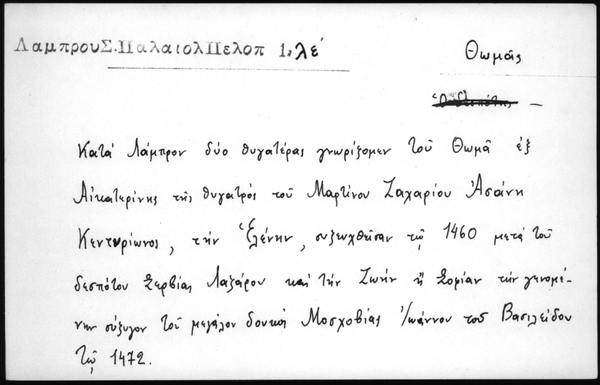 Λαμπρου Σ. Παλαιολ Πελοπ 1, λε'
Θωμᾶς
Κατά Λάμπρον δύο θυγατέρας γνωρίζομεν τοῦ Θωμᾶ ἐξ
Αἰκατερίνης τῆς θυγατρός τοῦ Μαρτίνου Ζαχαρίου Ἀσάνη
Κεντυρίωνος, τήν Ἑλένην, συζευχθεῖσαν τῷ 1460 μετά τοῦ
δεσπότου Σερβίας Λαζάρου καί τήν Ζωήν ἤ Σοφίαν τήν γενομέ-
νην σύζυγον τοῦ μεγάλου δουκός Μοσχοβίας Ἰωάννου τοῦ Βασιλείδου
τῷ 1472.